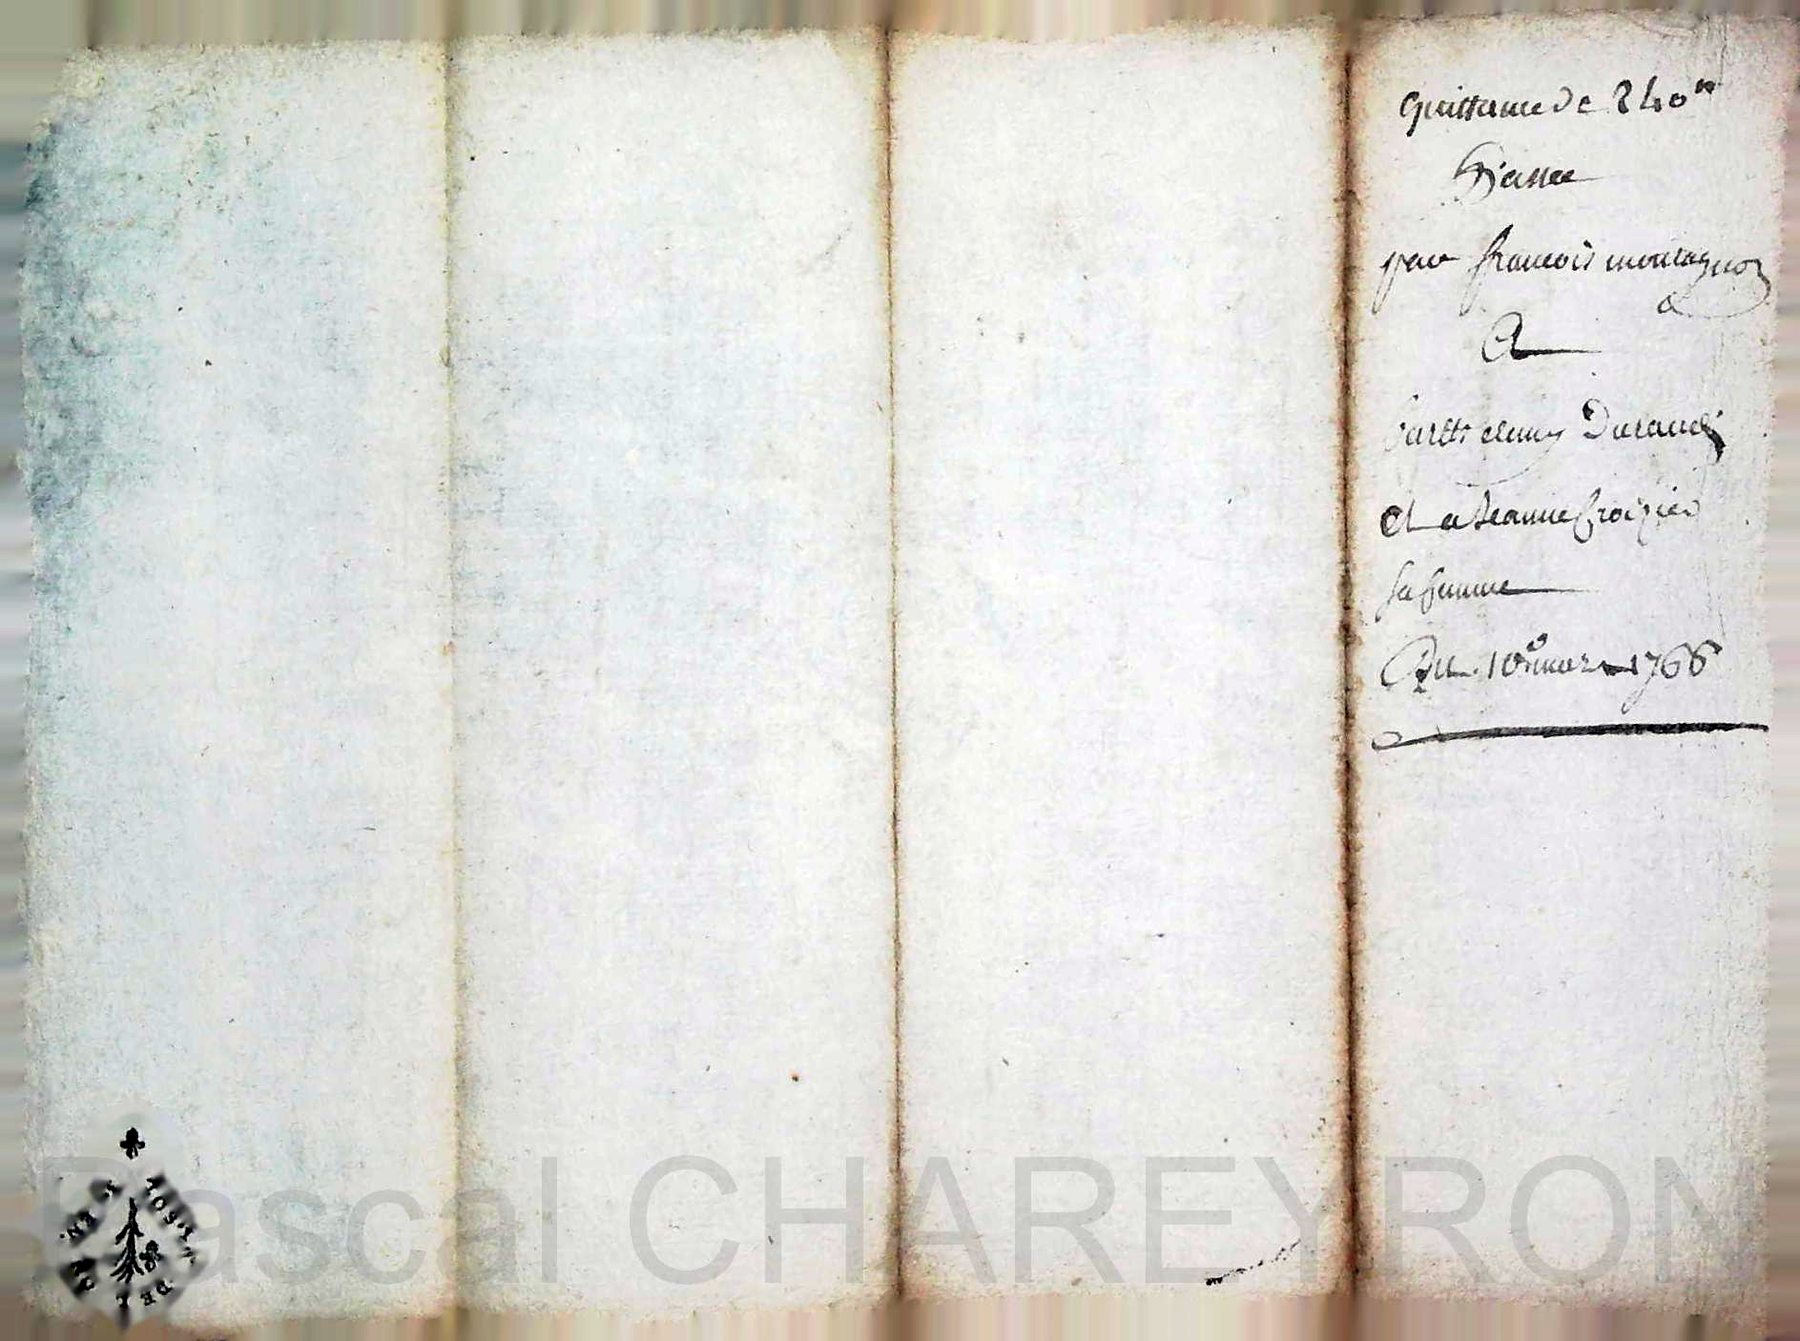 quittance de 240ᵗᵗ
passée
par francois montagnon
A
barthelemy Durand
et a Jeanne Croizier
sa femme
Du 10ᵉ mars 1766
Pascal CHAREYRON